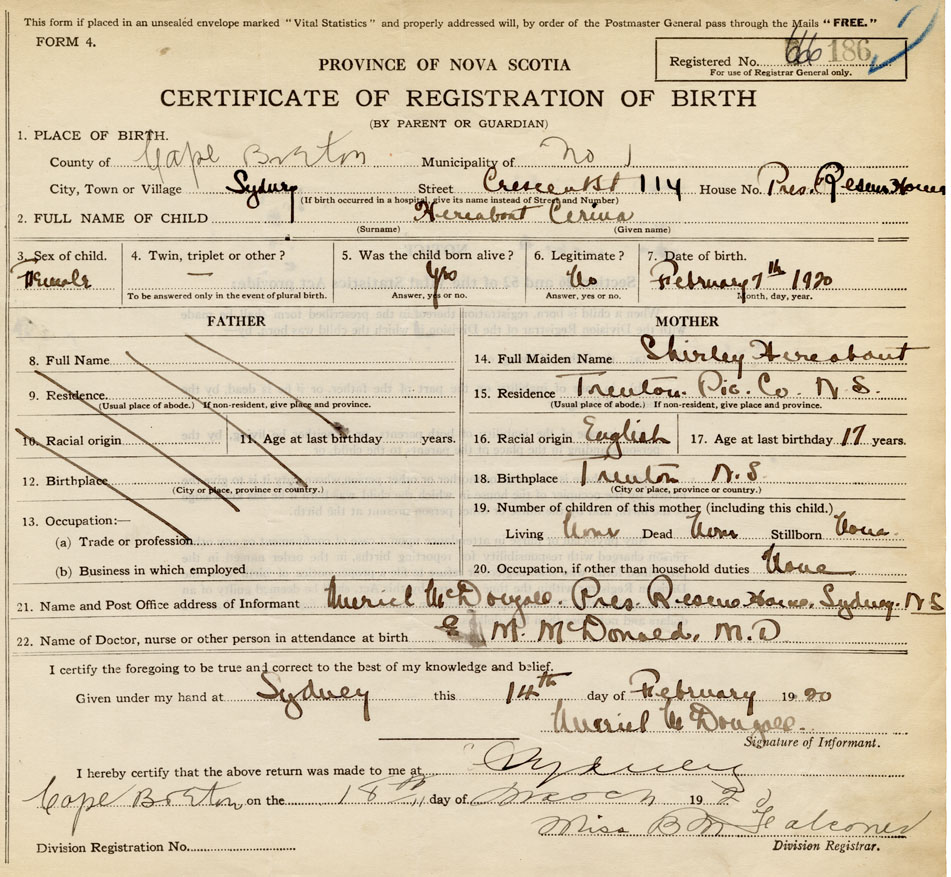 This form if placed in an unsealed envelope marked "Vital Statistics" and properly addressed will, by order of the Postmaster General pass through the Mails "FREE."
FORM 4.
Registered No. 186
For use of Registrar General only.
PROVINCE OF NOVA SCOTIA
CERTIFICATE OF REGISTRATION OF BIRTH
(BY PARENT OR GUARDIAN)
1. PLACE OF BIRTH.
County of Cape Breton Municipality of No 1
City, Town or Village Sydney Street Crescent St 114 House No. Pres. Rescue Home
(If birth occurred in a hospital, give its name instead of Street and Number)
2. FULL NAME OF CHILD Hereabout Cerina
(Surname) (Given name)
3. Sex of child. 4. Twin, triplet or other? 5. Was the child born alive? 6. Legitimate? 7. Date of birth.
Female — Yes No February 7th 1920
To be answered only in the event of plural birth. Answer, yes or no. Answer, yes or no. Month, day, year.
FATHER
8. Full Name
9. Residence
(Usual place of abode.) If non-resident, give place and province.
10. Racial origin 11. Age at last birthday years.
12. Birthplace
(City or place, province or country.)
13. Occupation:—
(a) Trade or profession
(b) Business in which employed
MOTHER
14. Full Maiden Name Shirley Hereabout
15. Residence Trenton. Pic. Co. N.S.
(Usual place of abode.) If non-resident, give place and province.
16. Racial origin English 17. Age at last birthday 17 years.
18. Birthplace Trenton N.S
(City or place, province or country.)
19. Number of children of this mother (including this child.)
Living None Dead None Stillborn None.
20. Occupation, if other than household duties None
21. Name and Post Office address of Informant Muriel McDougall. Pres. Rescue Home. Sydney. N S
22. Name of Doctor, nurse or other person in attendance at birth M. McDonald, M.D
I certify the foregoing to be true and correct to the best of my knowledge and belief.
Given under my hand at Sydney this 14th day of February 1920
Muriel McDougall.
Signature of Informant.
I hereby certify that the above return was made to me at Sydney
Cape Breton on the 18th day of March 192
Miss B M Falconer
Division Registration No.
Division Registrar.